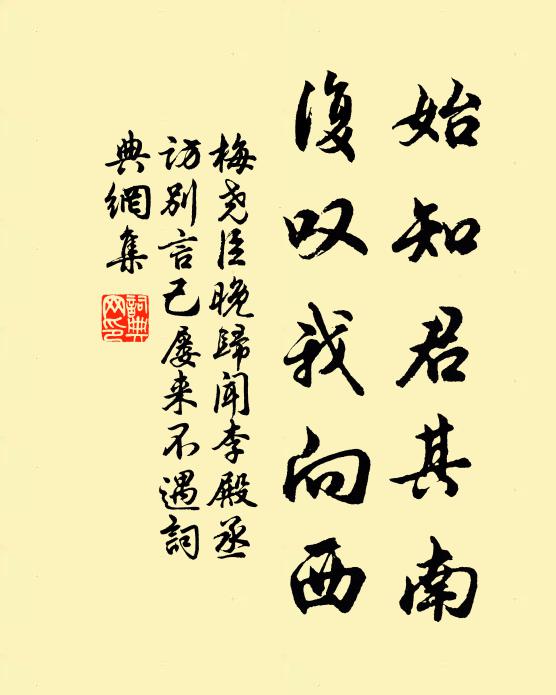 始知君其南
復叹我向西
梅尧臣晚歸闻李殿丞
访别言已屡来不遇詞
典網集
詞典网印